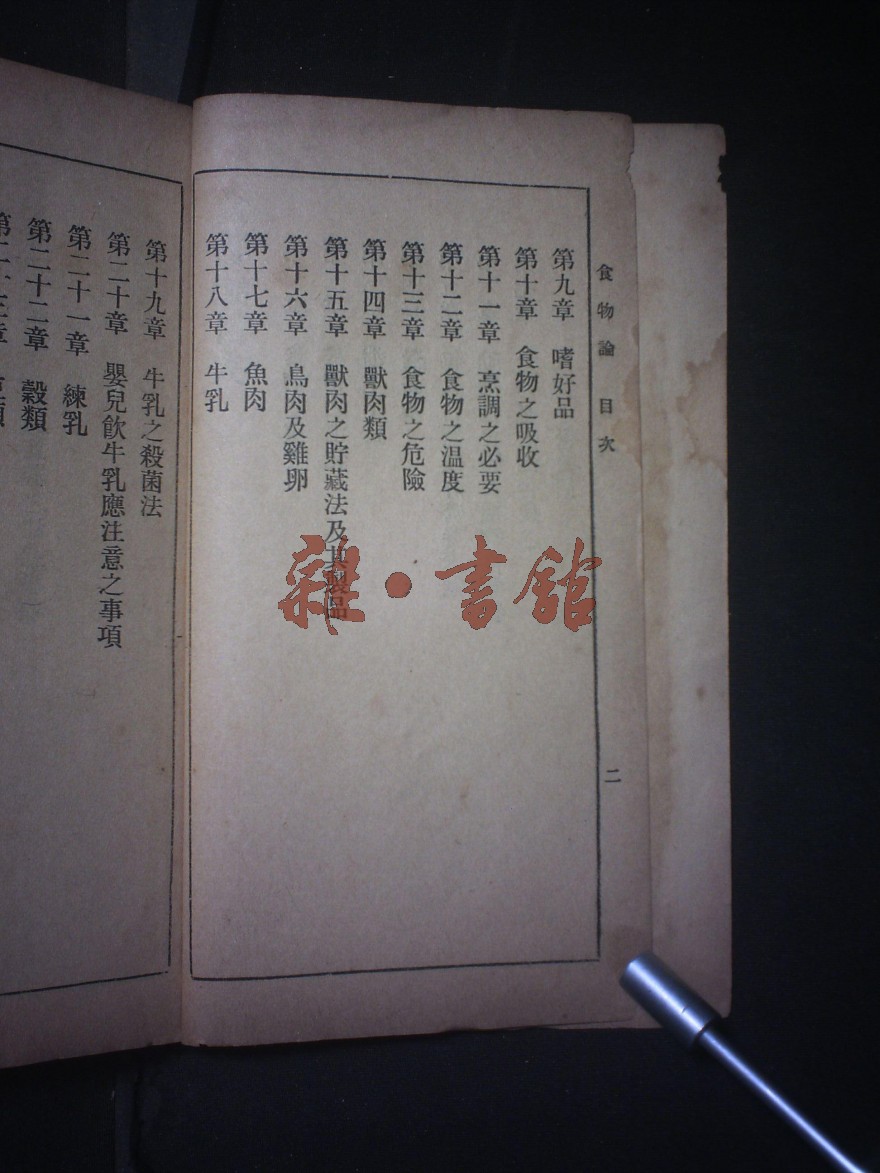 食物論 目次
二
第九章 嗜好品
第十章 食物之吸收
第十一章 烹調之必要
第十二章 食物之温度
第十三章 食物之危險
第十四章 獸肉類
第十五章 獸肉之貯藏法及其製品
第十六章 鳥肉及雞卵
第十七章 魚肉
第十八章 牛乳
第十九章 牛乳之殺菌法
第二十章 嬰兒飲牛乳應注意之事項
第二十一章 練乳
第二十二章 穀類
雜·書館